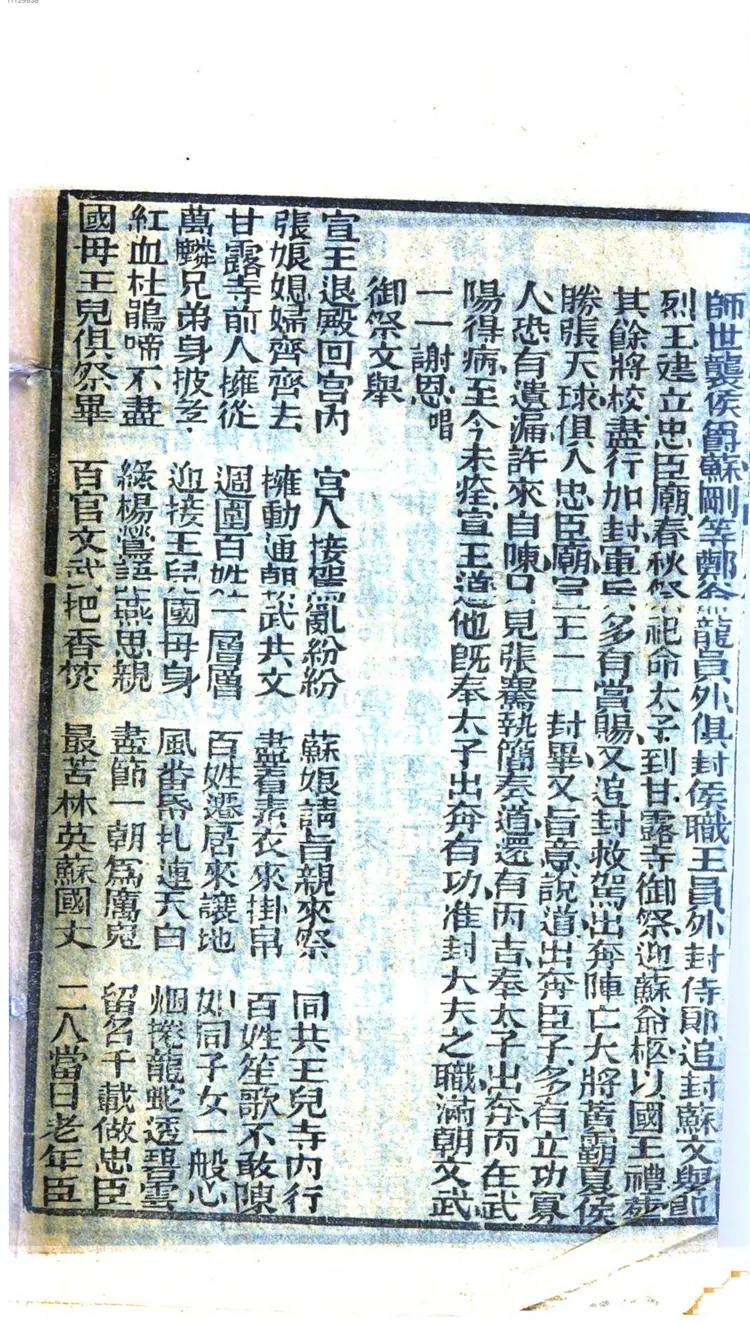 師世襲侯爵蘇剛等鄭龍員外俱封侯職王員外封侍郎追封蘇文舉節
烈王建立忠臣廟春秋祭祀命太子到甘露寺御祭迎蘇爺柩以國王禮葬
其餘將校盡行加封軍多有賞賜又追封救駕出奔陣亡大將黃霸夏侯
勝張天球俱入忠臣廟宣王一一封畢又旨意說道出奔臣子多有立功寡
人恐有遺漏許來自陳只見張騫執簡奏道還有丙吉奉太子出奔丙在武
陽得病至今未痊宣王道他旣奉太子出奔有功准封大夫之職滿朝文武
一一謝恩唱
御祭文舉
宣王退殿回宮內 宮人接駕亂紛紛 蘇娘請旨親來祭 同共王兒寺內行
張娘媳婦齊齊去 擁動通朝武共文 盡着素衣來掛帛 百姓笙歌不敢陳
甘露寺前人擁從 週圍百姓一層層 百姓遷居來讓地 如同子女一般心
萬麟兄弟身披孝 迎接王兒國母身 風番旛扎連天白 烟捲龍蛇透碧雲
紅血杜鵑啼不盡 綠楊鶯語燕思親 盡節一朝爲厲鬼 留名千載做忠臣
國母王兒俱祭畢 百官文武把香焚 最苦林英蘇國丈 二人當日老年臣
11129938